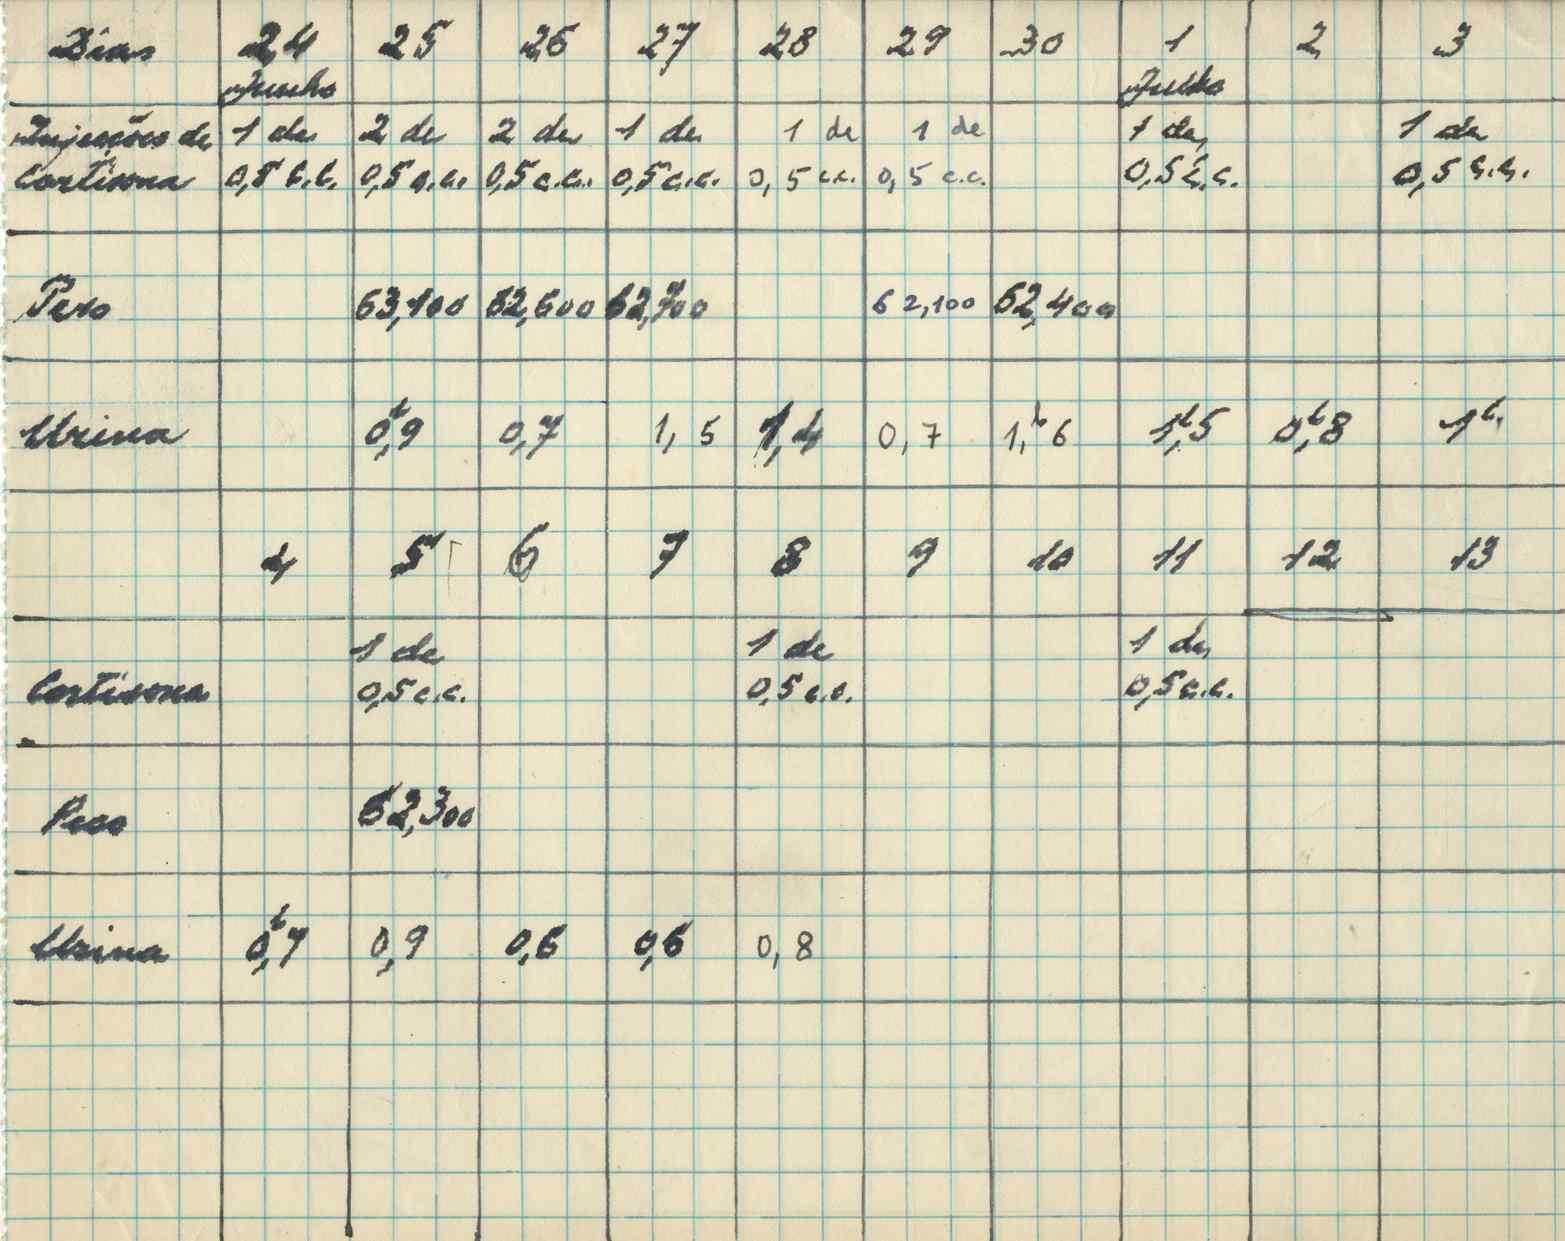 Dias 24 25 26 27 28 29 30 1 2 3
Junho Julho
Injecções de 1 de 2 de 2 de 1 de 1 de 1 de 1 de 1 de
Cortisona 0,5 c.c. 0,5 c.c. 0,5 c.c. 0,5 c.c. 0,5 c.c. 0,5 c.c. 0,5 c.c. 0,5 c.c.
Peso 63,100 62,600 62,700 62,100 62,400
Urina 0,l9 0,7 1,5 1,4 0,7 1,l6 1,l5 0,l8 1l.
4 5 6 7 8 9 10 11 12 13
1 de 1 de 1 de
Cortisona 0,5 c.c. 0,5 c.c. 0,5 c.c.
Peso 62,300
Urina 0,l7 0,9 0,6 0,6 0,8